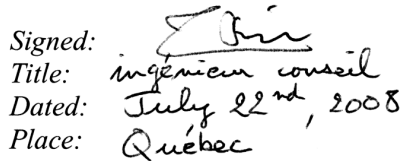 Signed:
Title: ingénieur conseil
Dated: July 22nd, 2008
Place: Québec